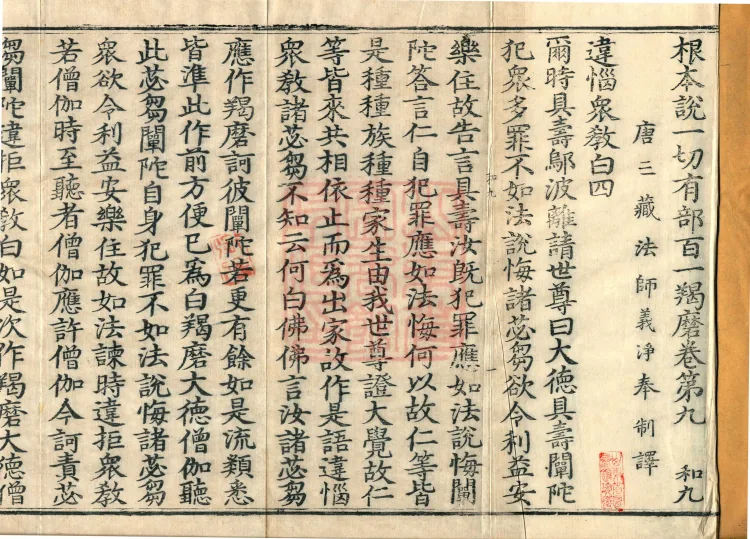 根本說一切有部百一羯磨卷第九 和九
唐三藏法師義淨奉 制譯
違惱衆教白四
爾時具壽鄔波離請世尊曰大德具壽闡陀
犯衆多罪不如法說悔諸苾芻欲令利益安
樂住故告言具壽汝旣犯罪應如法說悔闡
陀答言仁自犯罪應如法悔何以故仁等皆
是種種族種種家生由我世尊證大覺故仁
等皆來共相依止而爲出家故作是語違惱
衆教諸苾芻不知云何白佛佛言汝諸苾芻
應作羯磨訶彼闡陀若更有餘如是流類悉
皆準此作前方便已爲白羯磨大德僧伽聽
此苾芻闡陀自身犯罪不如法說悔諸苾芻
衆欲令利益安樂住故如法諫時違拒衆教
若僧伽時至聽者僧伽應許僧伽今訶責苾
芻闡陀違拒衆教白如是次作羯磨大德僧